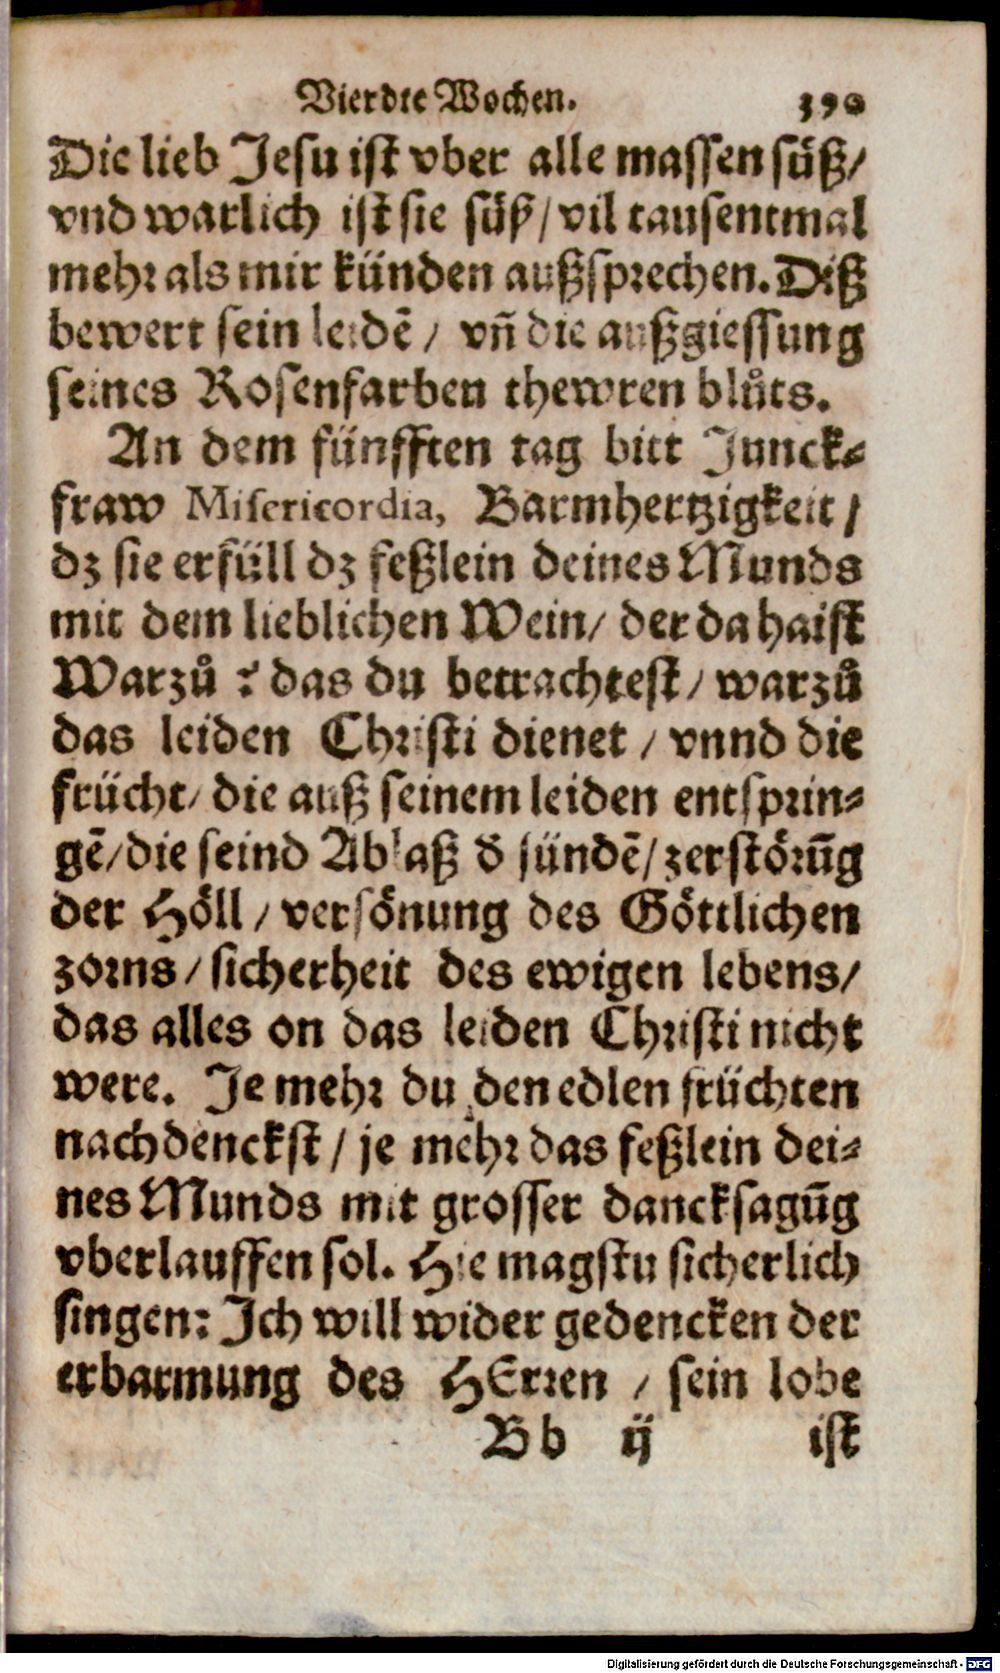 Vierdte Wochen. 390
Die lieb Jesu ist vber alle massen süß/
vnd warlich ist sie süß/ vil tausentmal
mehr als mir künden außsprechen. Diß
bewert sein leidē / vn̄ die außgiessung
seines Rosenfarben thewren blůts.
An dem fünfften tag bitt Junck-
fraw Misericordia, Barmhertzigkeit /
dz sie erfüll dz feßlein deines Munds
mit dem lieblichen Wein/ der da haist
Warzů ? das du betrachtest/ warzů
das leiden Christi dienet / vnnd die
frücht/ die auß seinem leiden entsprin-
gē/die seind Ablaß d̄ sündē/ zerstörūg
der Höll / versönung des Göttlichen
zorns / sicherheit des ewigen lebens/
das alles on das leiden Christi nicht
were. Je mehr du den edlen früchten
nachdenckst / je mehr das feßlein dei-
nes Munds mit grosser dancksagūg
vberlauffen sol. Hie magstu sicherlich
singen: Ich will wider gedencken der
erbarmung des HErren / sein lobe
Bb ij ist
Digitalisierung gefördert durch die Deutsche Forschungsgemeinschaft - DFG